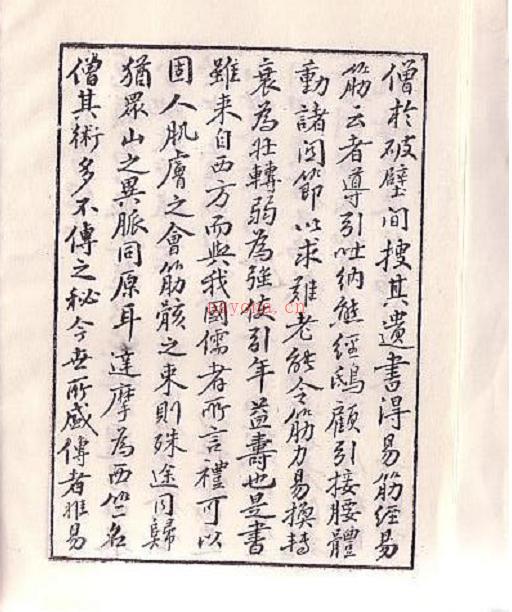 僧於破壁间搜其遺書得易筋經易
筋云者導引吐納熊經鴟顧引接腰體
動諸関節以求难老能令筋力易換轉
衰為壯轉弱為強使引年益壽也是書
雖来自西方而與我國儒者所言禮可以
固人肌膚之會筋骸之束則殊途同歸
猶眾山之異脈同原耳達摩為西竺名
僧其術多不傳之秘今世所盛傳者惟易
nayona.cn